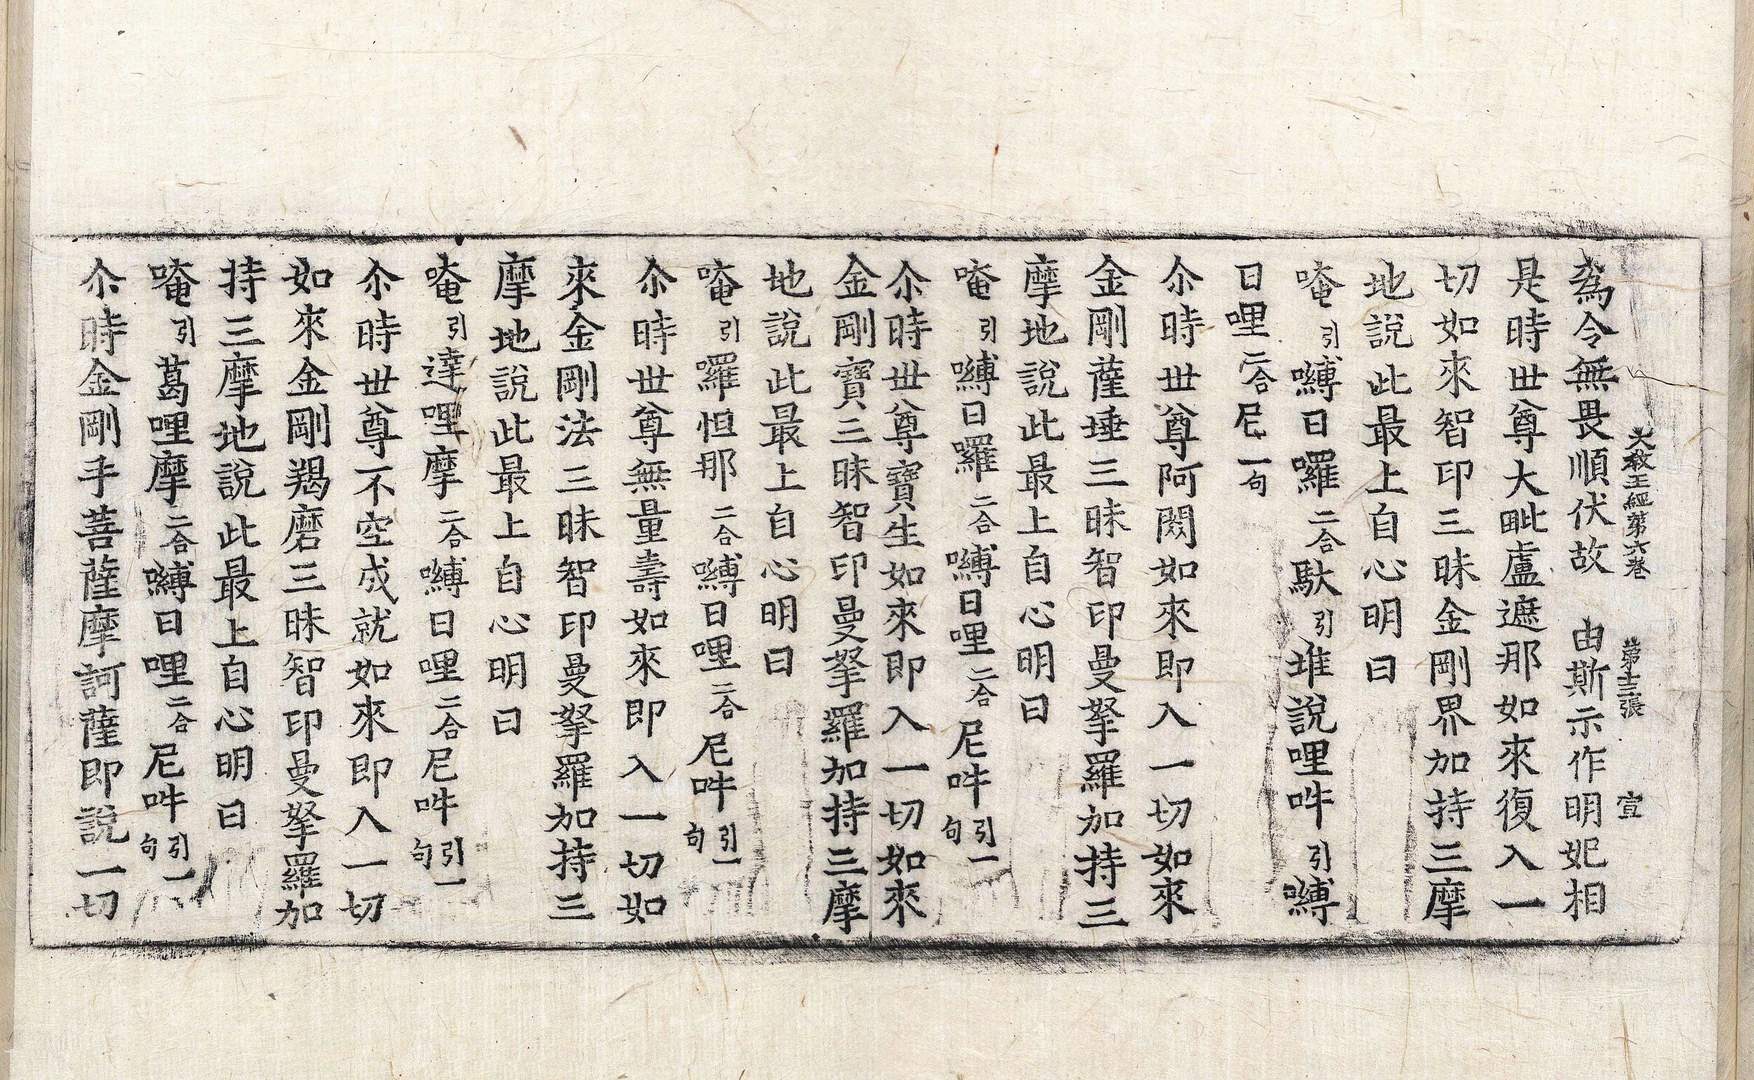 為令無畏順伏故　由斯示作明妃相
大教王經第六卷　第十三張　宣
是時世尊大毗盧遮那如來復入一
切如來智印三昧金剛界加持三摩
地說此最上自心明曰
唵引嚩日囉二合馱引堆說哩吽引嚩
日哩二合尼一句
尒時世尊阿閦如來即入一切如來
金剛薩埵三昧智印曼拏羅加持三
摩地說此最上自心明曰
唵引嚩日囉二合嚩日哩二合尼吽引一句
尒時世尊寶生如來即入一切如來
金剛寶三昧智印曼拏羅加持三摩
地說此最上自心明曰
唵引囉怛那二合嚩日哩二合尼吽引一句
尒時世尊無量壽如來即入一切如
來金剛法三昧智印曼拏羅加持三
摩地說此最上自心明曰
唵引達哩摩二合嚩日哩二合尼吽引一句
尒時世尊不空成就如來即入一切
如來金剛羯磨三昧智印曼拏羅加
持三摩地說此最上自心明曰
唵引葛哩摩二合嚩日哩二合尼吽引一句
尒時金剛手菩薩摩訶薩即說一切